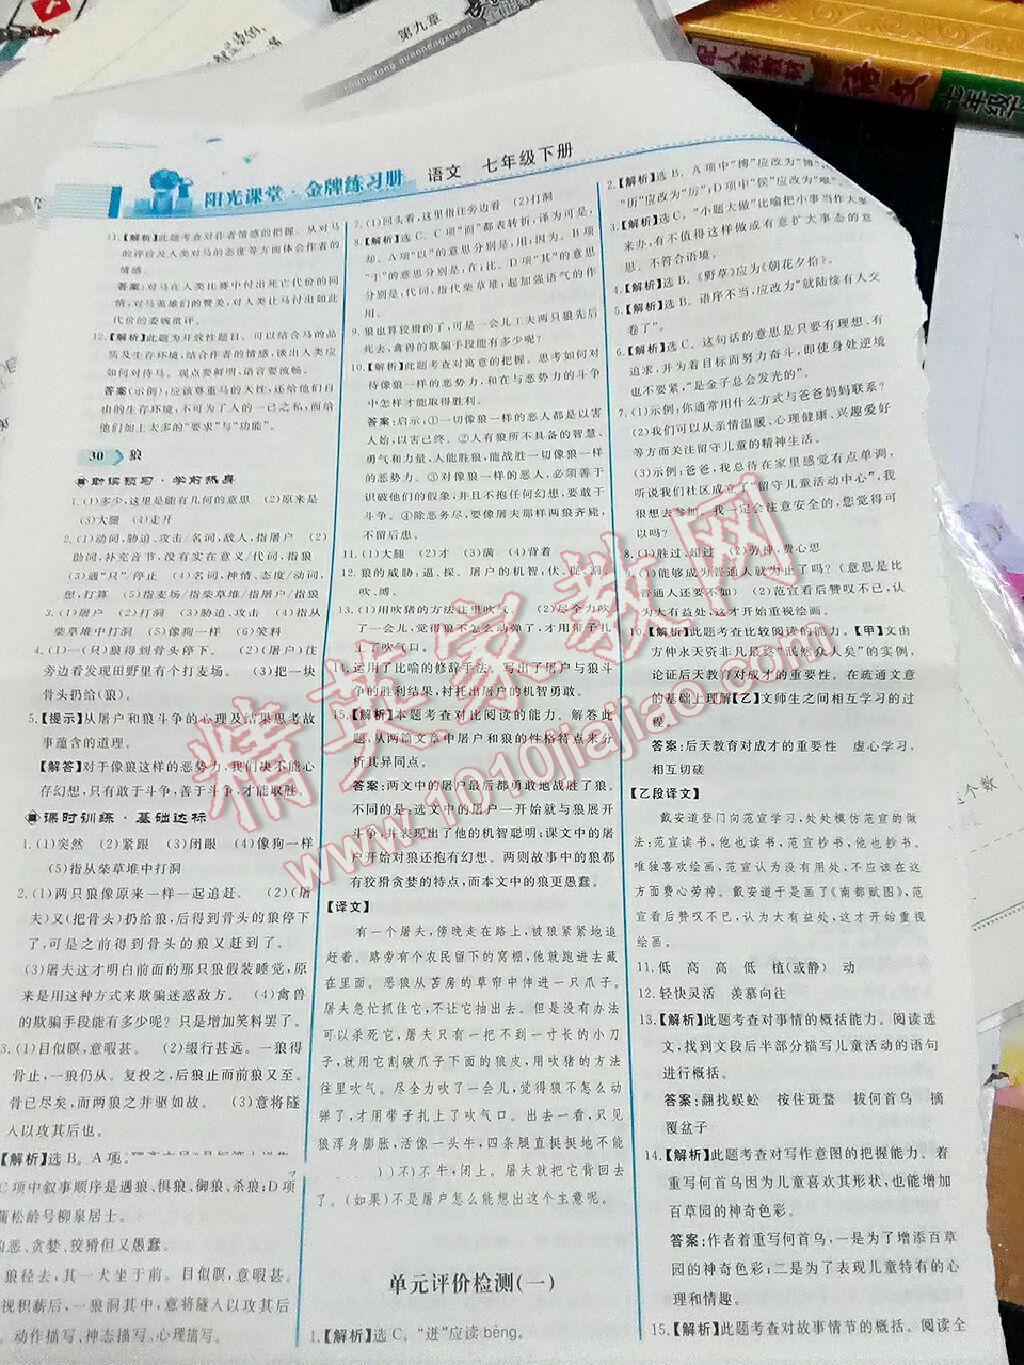 第九章
语文
七年级下
阳光课堂·金牌练习册 语文 七年级下册
11.【解析】此题考查对作者情感的把握。从对马
的评价及人类对马的态度等方面体会作者的
情感。
答案:对马在人类比赛中付出死亡代价的同
情,对马英雄们的赞美,对人类让马付出如此
代价的委婉批评。
12.【解析】此题为开放性题目。可以结合马的品
质及生存环境,结合作者的情感,谈出人类应
如何对待马。观点要鲜明,语言要流畅。
答案(示例):应该尊重马的天性,还给他们自
由的生存环境,不可为了人的一己之私,而给
他们加上太多的“要求”与“功能”。
30 狼
助读预习·学前热身
1.(1)多少,这里是能有几何的意思 (2)原来是
(3)大腿 (4)走开
2.(1)动词,胁迫、攻击/名词,敌人,指屠户 (2)
助词,补充音节,没有实在意义/代词,指狼
(3)通“只”/停止 (4)名词,神情、态度/动词,
想,打算 (5)指麦场/指柴草堆/指屠户/指狼
3.(1)屠户 (2)打洞 (3)胁迫、攻击 (4)指从
柴草堆中打洞 (5)像狗一样 (6)笑料
4.(1)一(只)狼得到骨头停下。 (2)(屠户)往
旁边看发现田野里有个打麦场。 (3)把一块
骨头扔给(狼)。
5.【提示】从屠户和狼斗争的心理及结果思考故
事蕴含的道理。
【解答】对于像狼这样的恶势力,我们决不能心
存幻想,只有敢于斗争,善于斗争,才能取胜。
课时训练·基础达标
1.(1)突然 (2)紧跟 (3)闭眼 (4)像狗一样
(5)指从柴草堆中打洞
2.(1)两只狼像原来一样一起追赶。 (2)(屠
夫)又(把骨头)扔给狼,后得到骨头的狼停下
了,可是之前得到骨头的狼又赶到了。
(3)屠夫这才明白前面的那只狼假装睡觉,原
来是用这种方式来欺骗迷惑敌方。 (4)禽兽
的欺骗手段能有多少呢?只是增加笑料罢了。
3.(1)目似瞑,意暇甚。 (2)缀行甚远。一狼得
骨止,一狼仍从。复投之,后狼止而前狼又至。
骨已尽矣,而两狼之并驱如故。 (3)意将隧
入以攻其后也。
【解析】选B。A项。
C项中叙事顺序是遇狼、惧狼、御狼、杀狼;D项
蒲松龄号柳泉居士。
凶恶、贪婪、狡猾但又愚蠢。
狼径去,其一犬坐于前。目似瞑,意暇甚。
视积薪后,一狼洞其中,意将隧入以攻其后
动作描写、神态描写、心理描写。
7.(1)回头看,这里指往旁边看 (2)打洞
8.【解析】选C。C项“而”都表转折,译为可是,
却。A项“以”的意思分别是:用;因为。B项
“于”的意思分别是:在;比。D项“其”的意思
分别是:代词,指代柴草堆;起加强语气的作
用。
9.狼也算狡猾的了,可是一会儿工夫两狼先后
死去,禽兽的欺骗手段能有多少呢?
10.【解析】此题考查对寓意的把握。思考如何对
待像狼一样的恶势力,和在与恶势力的斗争
中怎样才能取得胜利。
答案(示例):①一切像狼一样的恶人都是以害
人始,以害己终。②人有所不具备的智慧、
勇气和力量,人能胜狼,能战胜一切像狼一样
的恶势力。③对像狼一样的恶人,必须善于
识破他们的假象,并且不抱任何幻想,要敢于
斗争。④除恶务尽,要像屠夫那样两狼齐毙,
不留后患。
11.(1)大腿 (2)才 (3)满 (4)背着
12.狼的威胁:逼、探。屠户的机智:伏、捉、割、
吹、缚。
13.(1)用吹猪的方法往里吹气。 (2)尽全力吹
了一会儿,觉得狼不怎么动弹了,才用带子扎
上了吹气口。
14.运用了比喻的修辞手法。写出了屠户与狼斗
争的胜利结果,衬托出屠户的机智勇敢。
15.【解析】本题考查对比阅读的能力。解答此
题,从两篇文章中屠户和狼的性格特点来分
析其异同点。
答案:两文中的屠户最后都勇敢地战胜了狼。
不同的是:选文中的屠户一开始就与狼展开
斗争,并表现出了他的机智聪明;课文中的屠
户开始对狼还抱有幻想。两则故事中的狼都
有狡猾贪婪的特点,而本文中的狼更愚蠢。
【译文】
有一个屠夫,傍晚走在路上,被狼紧紧地追
赶着。路旁有个农民留下的窝棚,他就跑进去藏
在里面。恶狼从苫房的草帘中伸进一只爪子。
屠夫急忙抓住它,不让它抽出去。但是没有办法
可以杀死它,屠夫只有一把不到一寸长的小刀
子,就用它割破爪子下面的狼皮,用吹猪的方法
往里吹气。尽全力吹了一会儿,觉得狼不怎么动
弹了,才用带子扎上了吹气口。出去一看,只见
狼浑身膨胀,活像一头牛,四条腿直挺挺地不能
闭上。屠夫就把它背回去
了。(如果)不是屠户怎么能想出这个主意呢。
单元评价检测(一)
1.【解析】选C。“迸”应读bèng。
2.【解析】选A。A项中“博”应改为“
“历”应改为“厉”;D项中“候”应改为“
3.【解析】选C。“小题大做”比喻把小事当作大事
来办,有不值得这样做或有意扩大事态的意
思。不符合语境。
4.【解析】选B。《野草》应为《朝花夕拾》。
5.【解析】选B。语序不当,应改为“就陆续有人交
卷了”。
6.【解析】选C。这句话的意思是只要有理想、有
追求,并为着目标而努力奋斗,即使身处逆境
也不要紧,“是金子总会发光的”。
7.(1)示例:你通常用什么方式与爸爸妈妈联系?
(2)我们可以从亲情温暖、心理健康、兴趣爱好
等方面关注留守儿童的精神生活。
(3)示例:爸爸,我总待在家里感觉有点单调,
听说我们社区成立了“留守儿童活动中心”,我
很想去参加。我一定会注意安全的,您觉得可
以吗?
8.(1)胜过,超过 (2)劳神,费心思
9.(1)能够成为普通人就万事了吗?(意思是比
普通人还要不如) (2)范宣看后赞叹不已,认
为大有益处,这才开始重视绘画。
10.【解析】此题考查比较阅读的能力。【甲】文由
方仲永天资非凡最终“泯然众人矣”的实例,
论证后天教育对成才的重要性。在疏通文意
的基础上理解【乙】文师生之间相互学习的过
程。
答案:后天教育对成才的重要性 虚心学习,
相互切磋
【乙段译文】
戴安道登门向范宣学习,处处模仿范宣的做
法:范宣读书,他也读书,范宣抄书,他也抄书。
唯独喜欢绘画,范宣认为没有用处,不应该在这
方面费心劳神。戴安道于是画了《南都赋图》,范
宣看后赞叹不已,认为大有益处,这才开始重视
绘画。
11.低 高 高 低 植(或静) 动
12.轻快灵活 羡慕向往
13.【解析】此题考查对事情的概括能力。阅读选
文,找到文段后半部分描写儿童活动的语句
进行概括。
答案:翻找蜈蚣 按住斑蝥 拔何首乌 摘
覆盆子
14.【解析】此题考查对写作意图的把握能力。着
重写何首乌因为儿童喜欢其形状,也能增加
百草园的神奇色彩。
答案:作者着重写何首乌,一是为了增添百草
园的神奇色彩;二是为了表现儿童有特有的心
理和情趣。
15.【解析】此题考查对故事情节的概括。阅读全
精英家教网
www.1010jiajiao.com